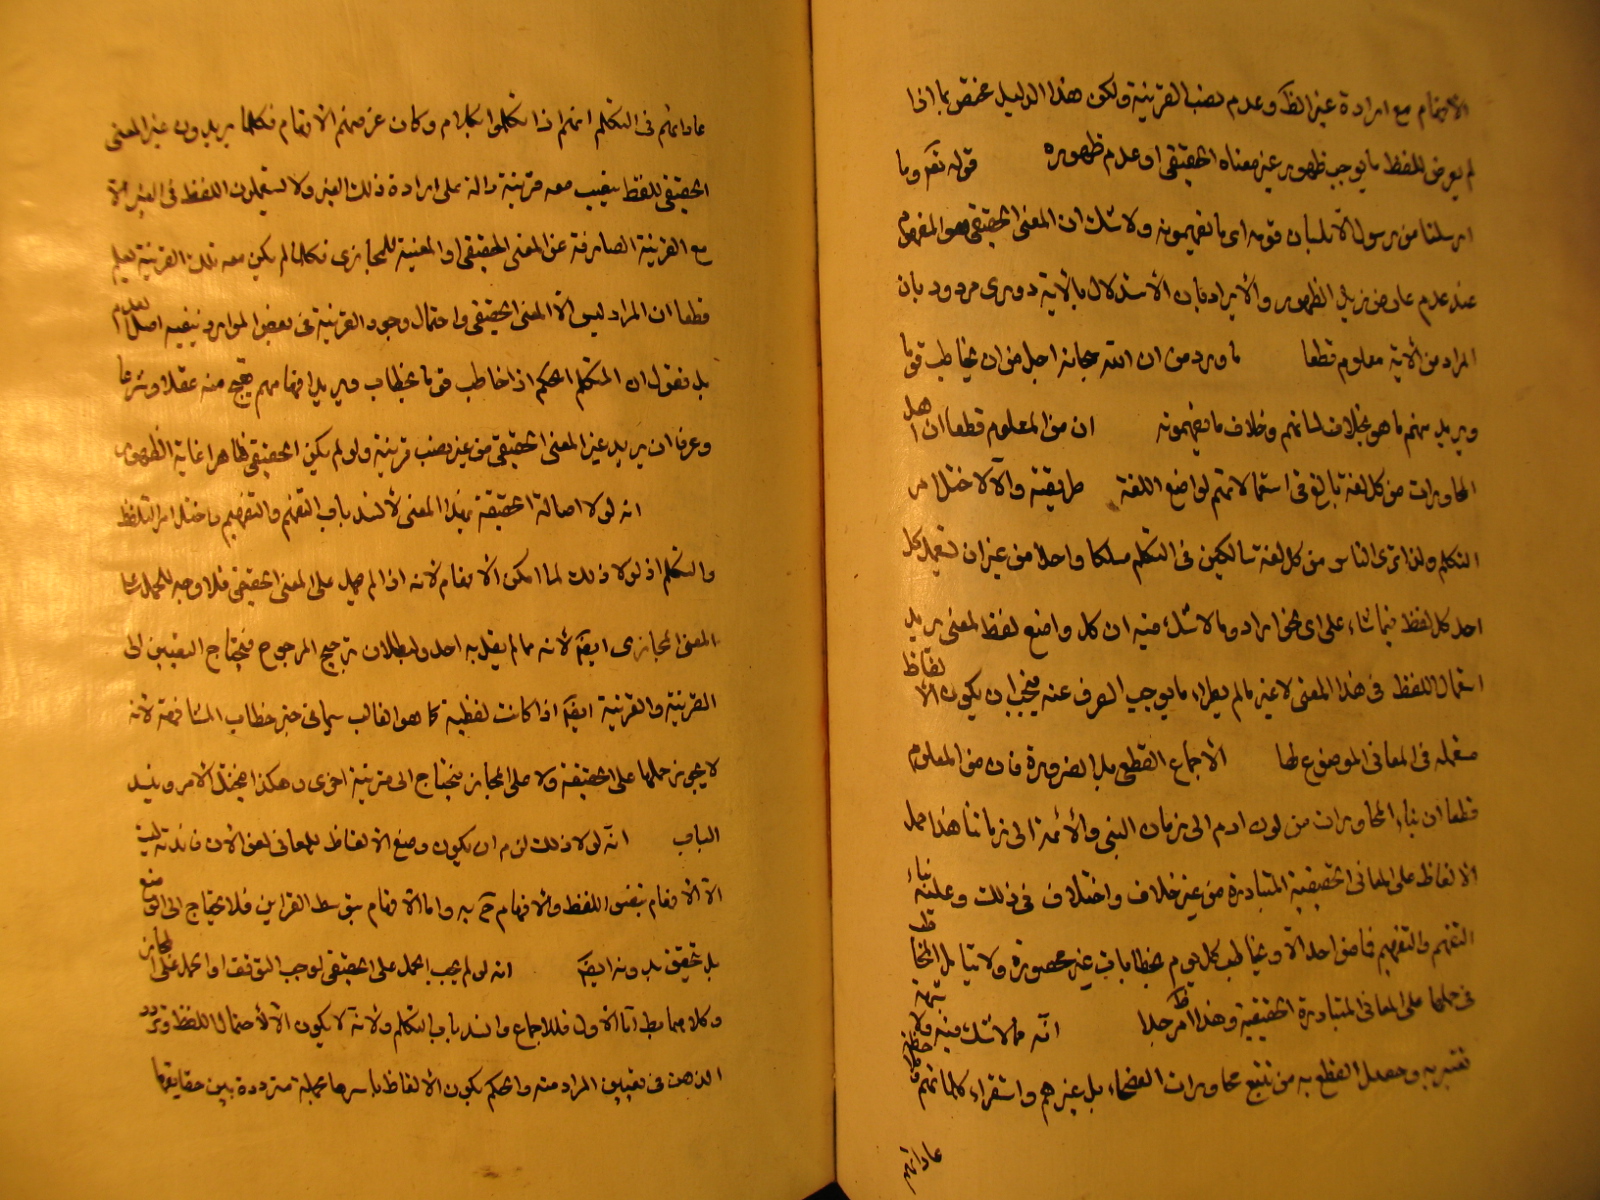 الافهام مع ارادة غير الظ وعدم نصب القرينة ولكن هذا الدليل مختص بما اذا
لم يعرض للفظ ما يوجب ظهور غير معناه الحقيقى او عدم ظهوره قوله تعم وما
ارسلنا من رسول الا بلسان قومه اى ما يفهمونه ولا شك ان المعنى الحقيقى هو المفهوم
عند عدم عارض يزيل الظهور والايراد بان الاستدلال بالاية دورى مردود بان
المراد من الاية معلوم قطعا ما ورد من ان الله سبحانه اجل من ان يخاطب قوما
ويريد منهم ما هو بخلاف لسانهم وخلاف ما يفهمونه ان من المعلوم قطعا ان اهل
المحاورات من كل لغة تابع فى استعمالاتهم لواضع اللغة طريقته والا لاختل امر
التكلم ولذا ترى الناس من كل لغة سالكين فى التكلم مسلكا واحدا من غير ان يستعمل كل
احد كل لفظ فيما شاء على اى نحو اراد ومما لا شك فيه ان كل واضع لفظ لمعنى يريد
استعمال اللفظ فى هذا المعنى لا غيره ما لم يطرء ما يوجب الصرف عنه فيجب ان يكون الالفاظ
مستعملة فى المعانى الموضوع لها الاجماع القطعى بل الضرورة فان من المعلوم
قطعا ان بناء المحاورات من لدن ادم الى زمان النبى والائمة الى زماننا هذا حمل
الالفاظ على المعانى الحقيقية المتبادرة من غير خلاف واختلاف فى ذلك وعليه بناء
التفهم والتفهيم فما من احد الا ويخاطب كل يوم بخطابات غير محصورة ولا يتامل المخاطب
فى حملها على المعانى المتبادرة الحقيقية وهذا امر ظ جدا انه مما لا شك فيه ولا شبهة
تعتريه وحصل القطع به من تتبع محاورات الفصحاء بل غيرهم واستقراء كلماتهم
عاداتهم
عاداتهم فى التكلم انهم اذا تكلموا بكلام وكان غرضهم الافهام فكلما يريدون غير المعنى
الحقيقى للفظ ينصب معه قرينة دالة على ارادة ذلك الغير ولا يستعملون اللفظ فى الغير الا
مع القرينة الصارفة عن المعنى الحقيقى او المعينة للمجازى فكلما لم يكن معه تلك القرينة يعلم
قطعا ان المراد ليس الا المعنى الحقيقى واحتمال وجود القرينة فى بعض الموارد ينفيه اصل العدم
بل نقول ان المتكلم الحكيم اذا خاطب قوما بخطاب ويريد افهامهم يقبح منه عقلا وشرعا
وعرفا ان يريد غير المعنى الحقيقى من غير نصب قرينة ولو لم يكن الحقيقى ظاهرا غاية الظهور
انه لولا اصالة الحقيقة بهذا المعنى لانسد باب التفهم والتفهيم واختل امر التلفظ
والتكلم اذ لولا ذلك لما امكن الافهام لانه اذا لم يحمل على المعنى الحقيقى فلا وجه للحمل على
المعنى المجازى ايضا لانه مما لم يقل به احد ولبطلان ترجيح المرجوح فيحتاج التعيين الى
القرينة والقرينة ايضا اذا كانت لفظية كما هو الغالب سيما فى حيز خطاب المشافهة لانه
لا يجوز حملها على الحقيقة ولا على المجاز فيحتاج الى قرينة اخرى وهكذا فيختل الامر وينسد
الباب انه لولا ذلك لزم ان يكون وضع الالفاظ للمعانى لغوا لان فائدته ليست
الا الافهام بنفس اللفظ والافهام ح به واما الافهام بتوسط القراين فلا يحتاج الى الوضع
بل تحقق بدونه ايضا انه لو لم يجب الحمل على الحقيقى لوجب التوقف او الحمل على المجاز
وكلاهما بط اما الاول فللاجماع وانسداد باب التكلم ولانه لا يكون الا لاحتمال اللفظ وتردد
الذهن فى تعيين المراد منه والحكم بكون الالفاظ باسرها مجملة مترددة بين حقايقها